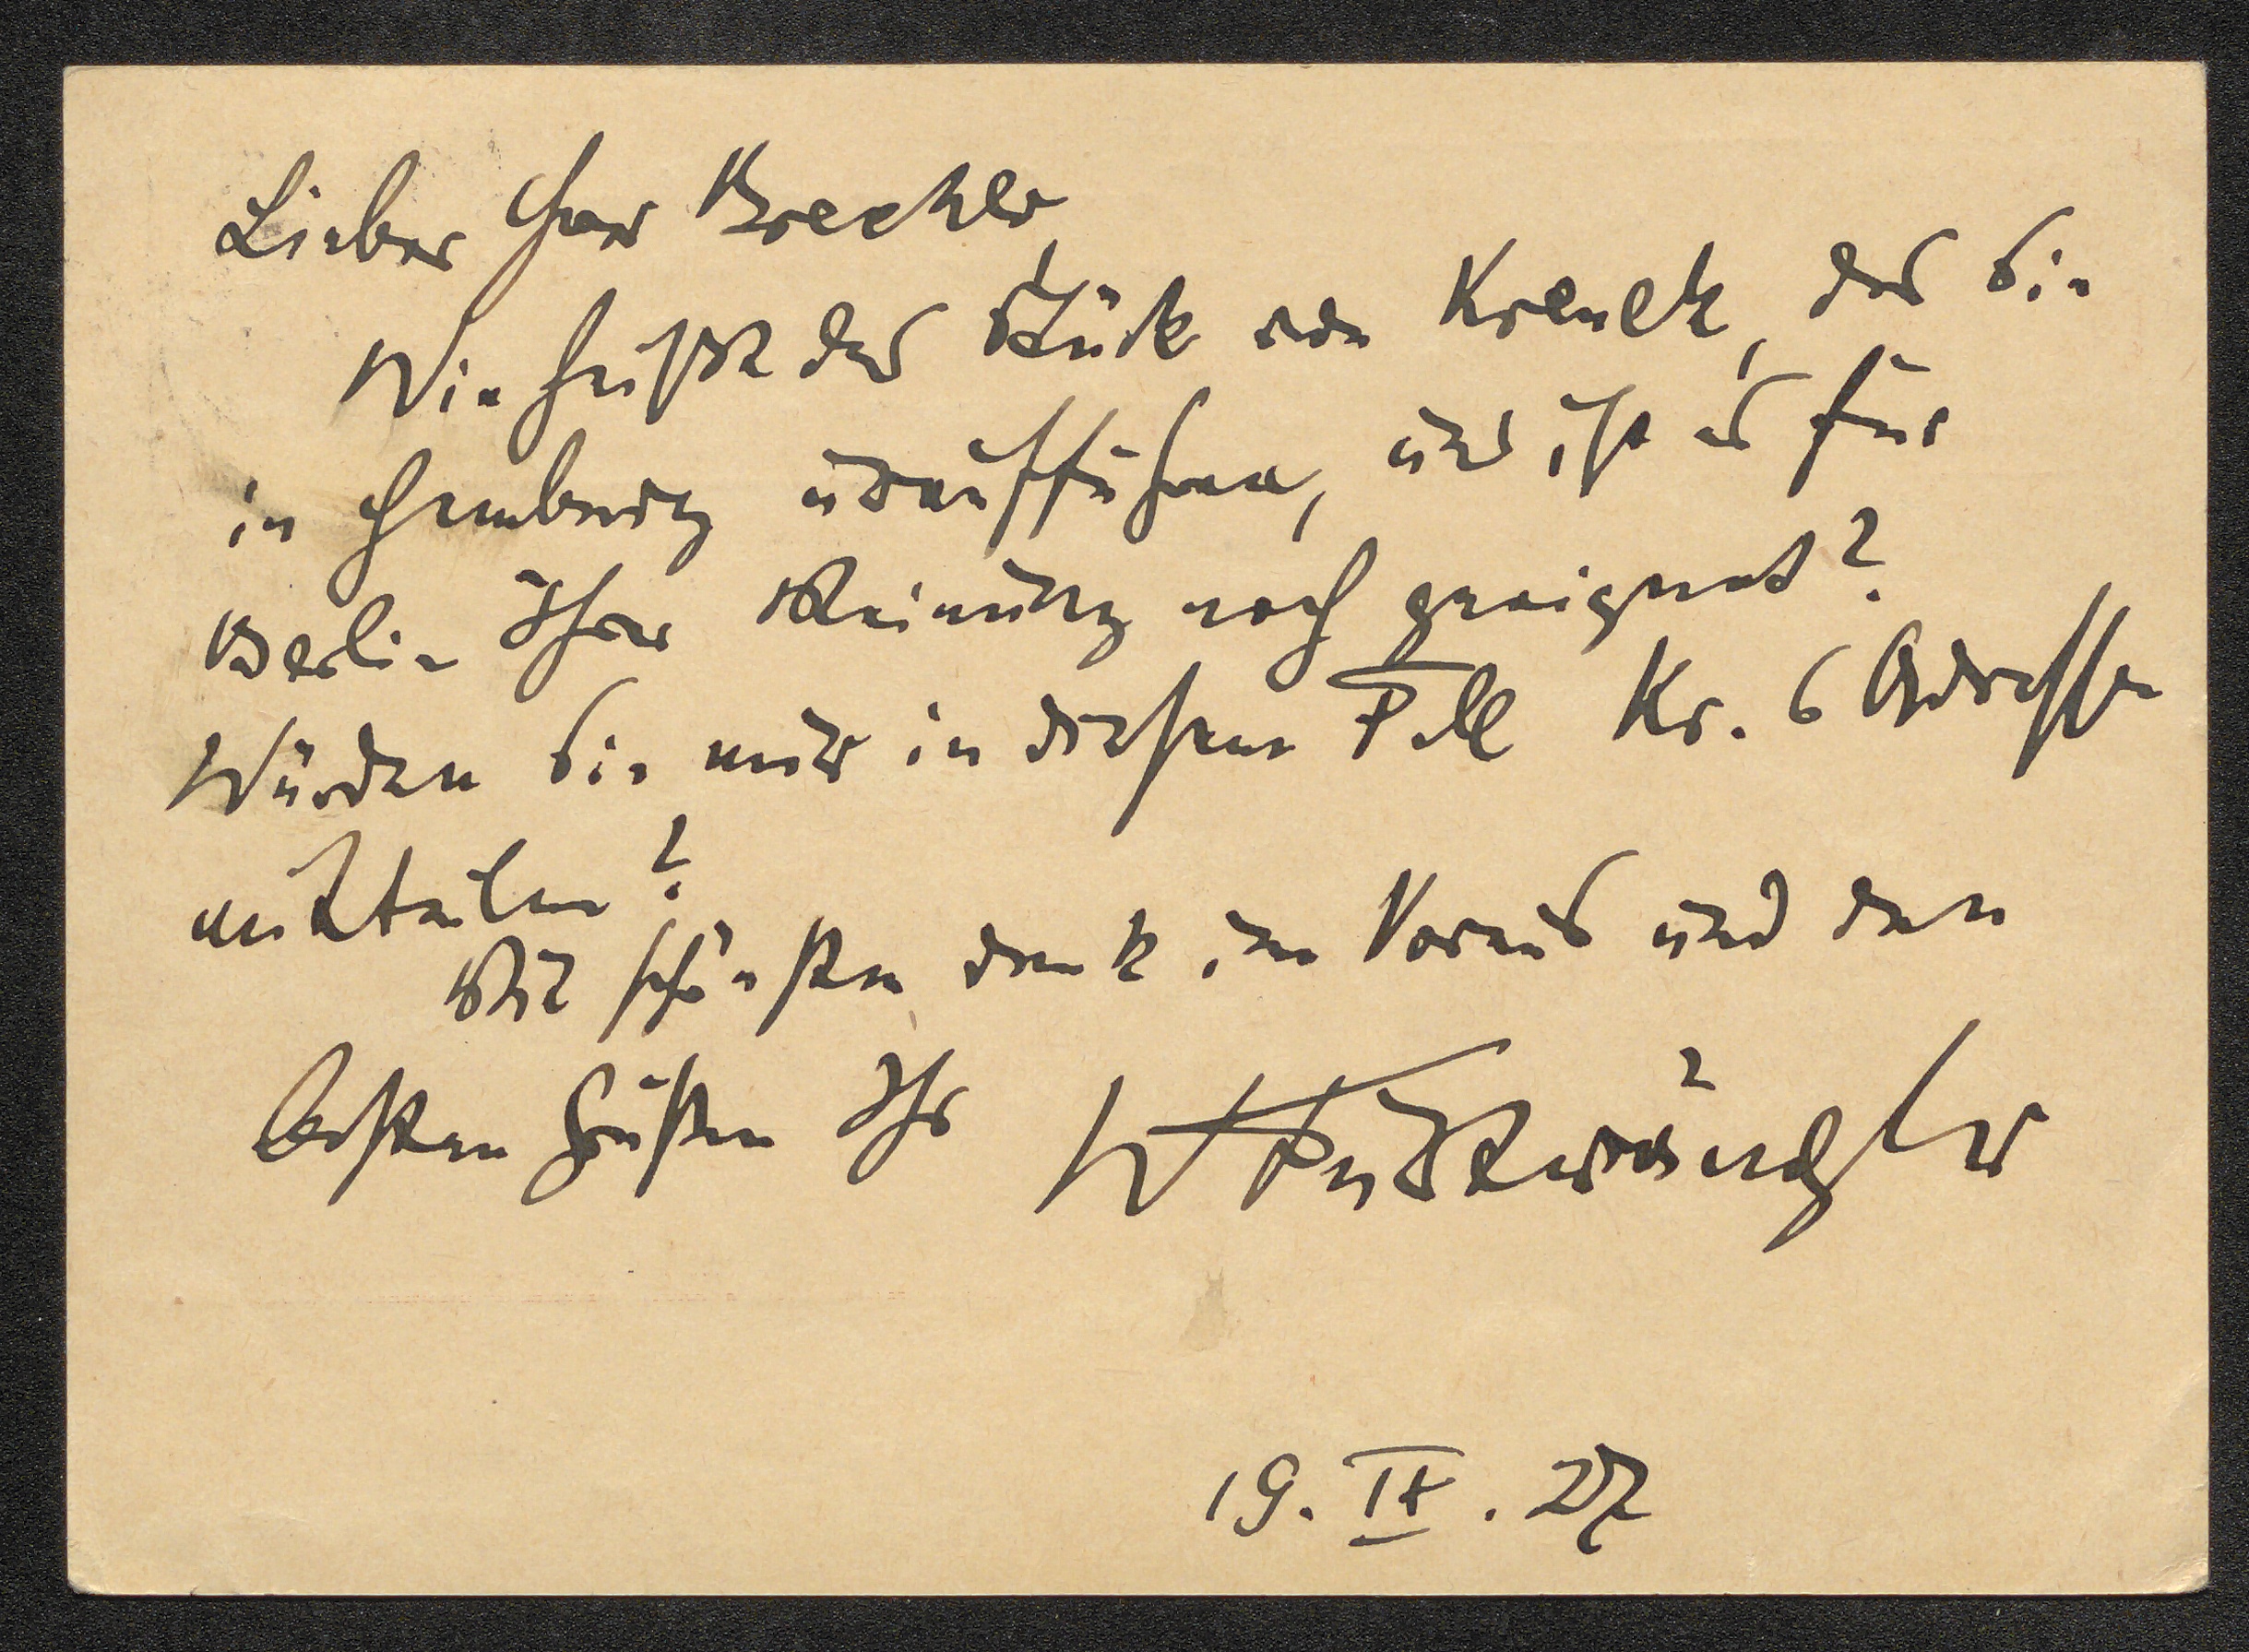 Lieber Herr Brecher,
Wie heißt das Stück von Krenek, das Sie
in Hamburg uraufführen, und ist es für
Berlin Ihrer Meinung nach geeignet?
Würden Sie mir in diesem Fall Kr.s Adresse
mitteilen?
Mit schönstem Dank im Voraus und den
besten Grüßen Ihr W Furtwängler
19. IX. 27